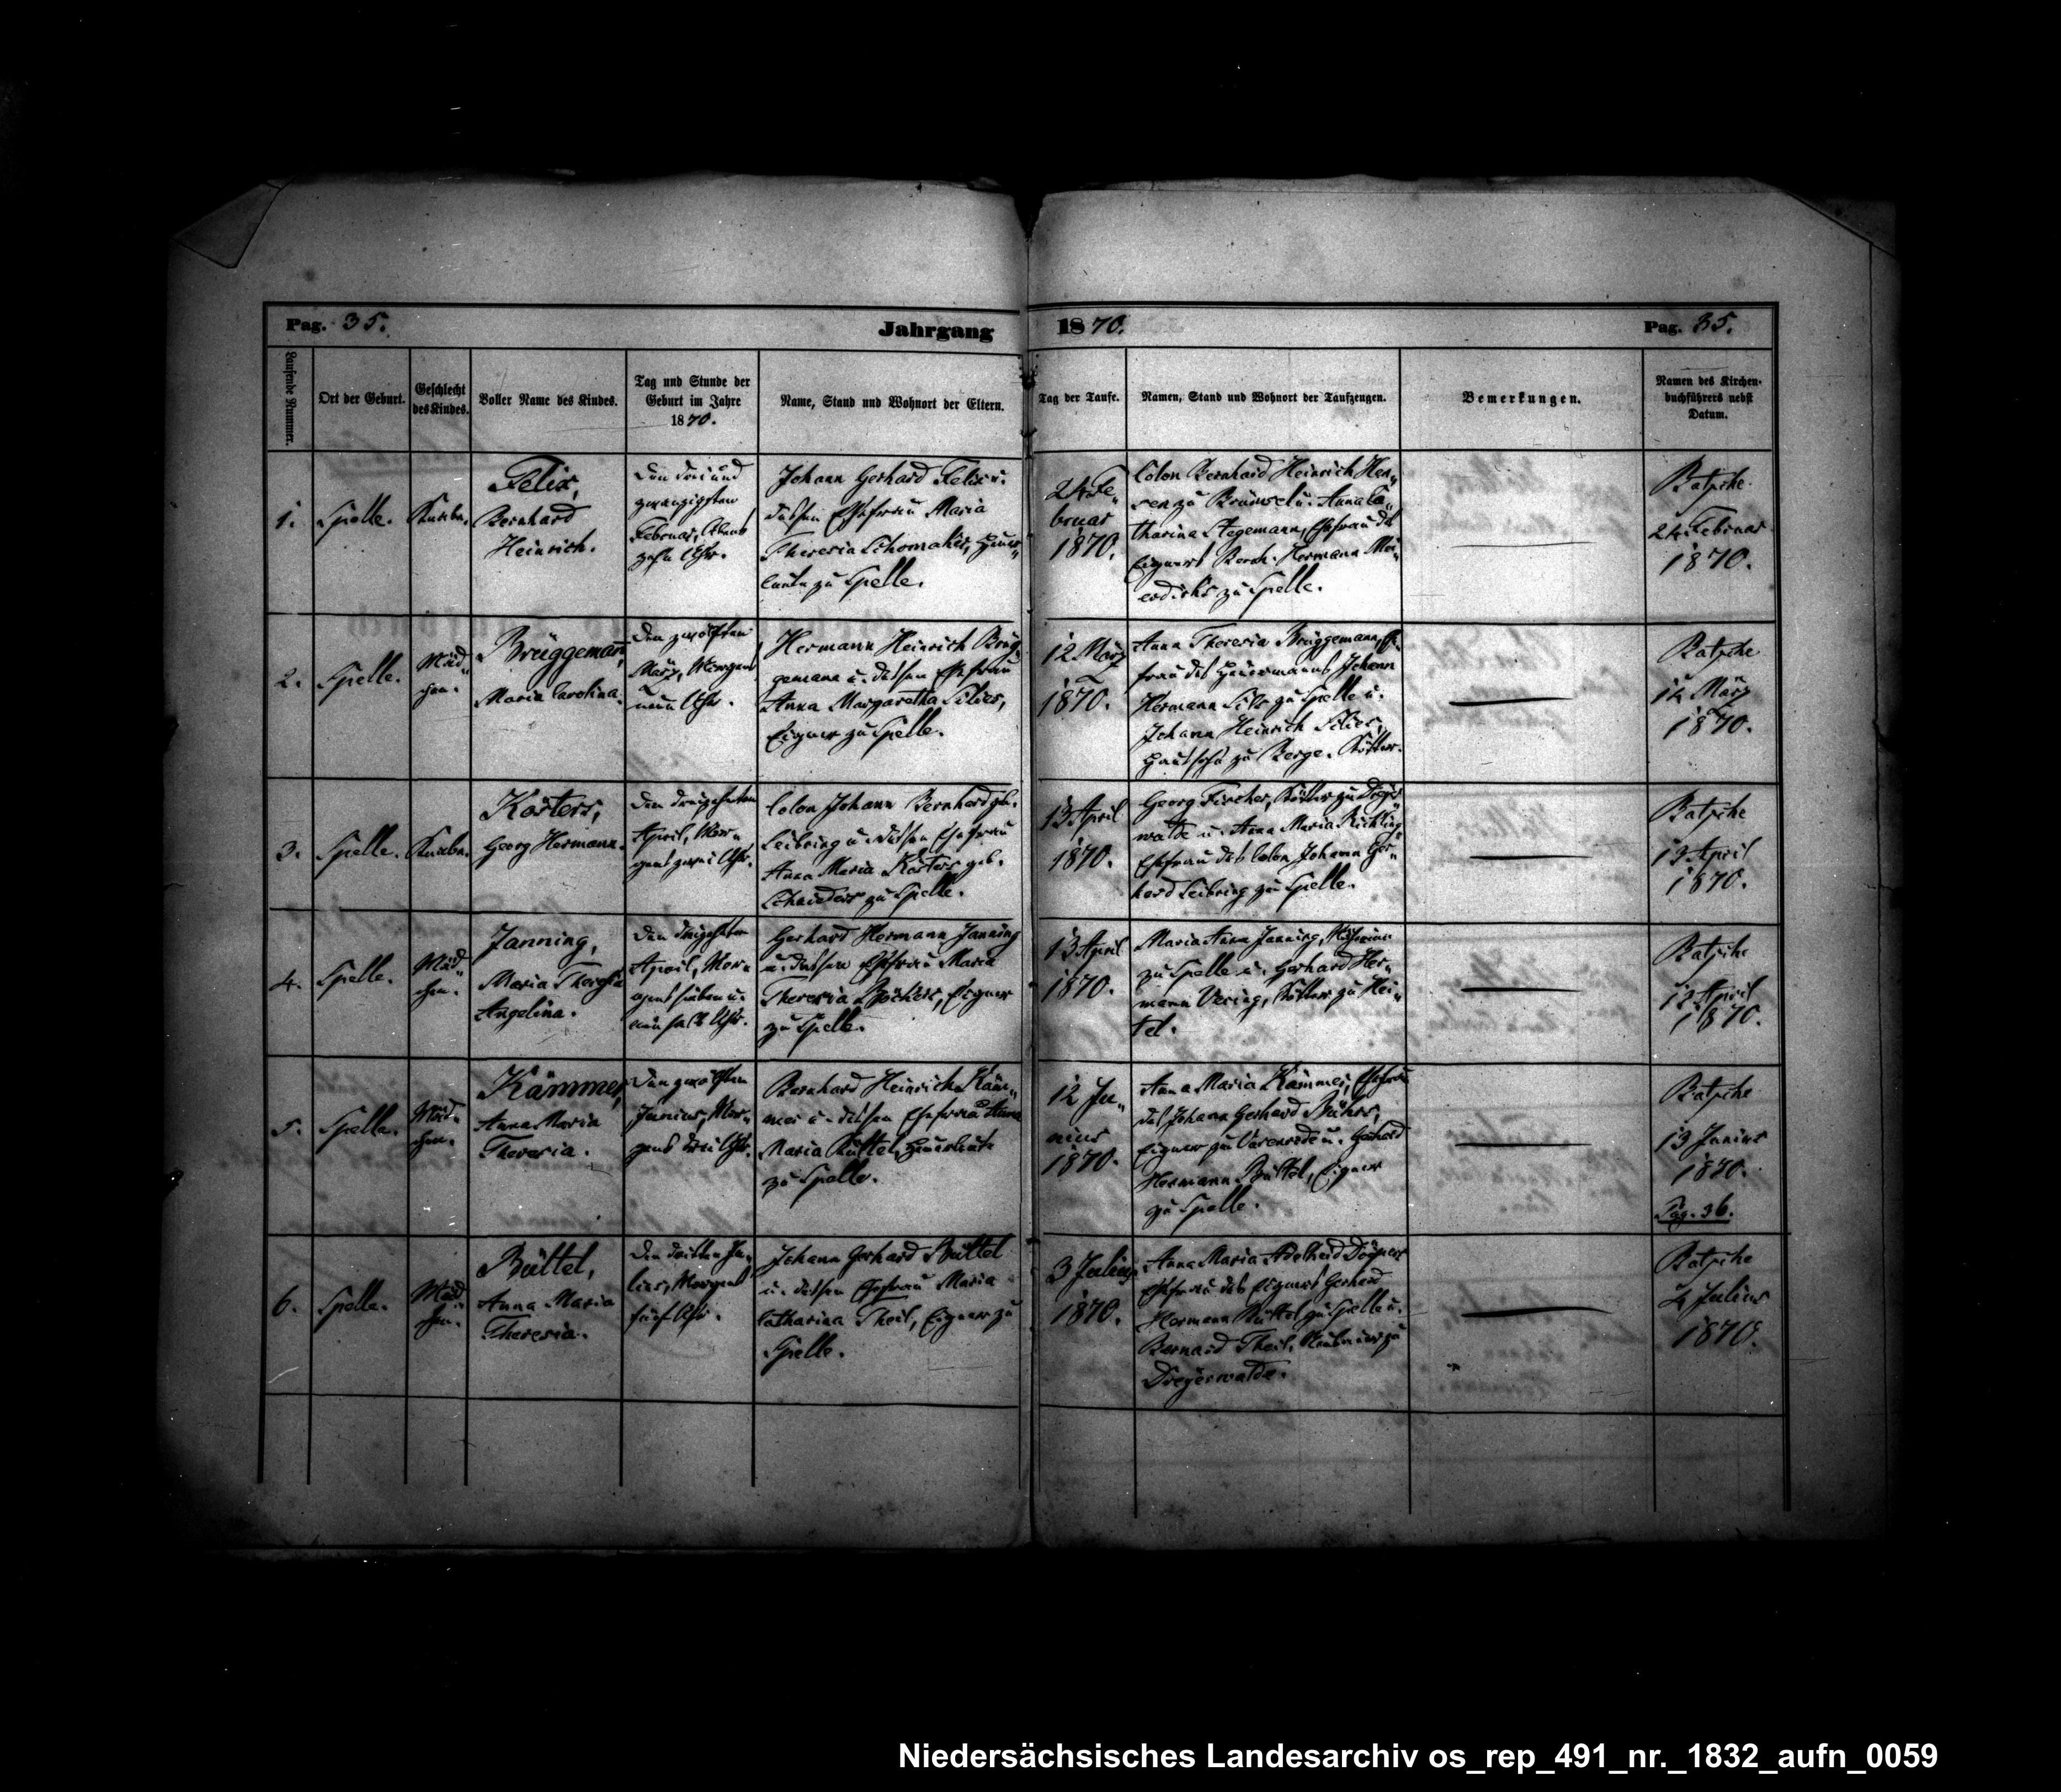 Pag. 35.
Jahrgang 1870.
Pag. 35.
Laufende Nummer.
Ort der Geburt.
Geschlecht
des Kindes.
Voller Name des Kindes.
Tag und Stunde der
Geburt im Jahre
1870.
Name, Stand und Wohnort der Eltern.
Tag der Taufe.
Namen, Stand und Wohnort der Taufzeugen.
Bemerkungen.
Namen des Kirchen-
buchführers nebst
Datum.
1.
Spelle.
Knabe.
Felix,
Bernhard
Heinrich.
Den drei und
zwanzigsten
Februar, Abends
zehn Uhr.
Johann Gerhard Felix u.
dessen Ehefrau Maria
Theresia Schomaker, Heuer„
leute zu Spelle.
24 Fe„
bruar
1870.
Colon Bernhard Heinrich
zu u. Anna Ca„
tharina Stegemann, Ehefrau des
Eigners Bernh. Hermann
zu Spelle.
Batsche
24 Februar
1870.
2.
Spelle.
Mäd„
chen.
Brüggemann,
Maria Carolina.
Den zwölften
März, Morgens
neun Uhr.
Hermann Heinrich Brüg„
gemann u. dessen Ehefrau
Anna Margaretha Silies,
Eigner zu Spelle.
12 März
1870.
Anna Theresia Brüggemann, Ehe
frau des Heuermanns Johann
Hermann zu Spelle u.
Johann Heinrich Silies,
zu Berge.
Batsche
14 März
1870.
3.
Spelle.
Knabe.
Kösters,
Georg Hermann.
Den dreizehnten
April, Mor„
gens zwei Uhr.
Colon Johann Bernhard geb.
Leibring u. dessen Ehefrau
Anna Maria Kösters geb.
Schnieders zu Spelle.
13 April
1870.
Georg Fischer, Kötter zu Dreyer
walde u. Anna Maria
Ehefrau des Colon Johann Ger„
hard Leibring zu Spelle.
Batsche
13 April
1870.
4.
Spelle.
Mäd„
chen.
Janning,
Maria Theresia
Angelina.
Den dreizehnten
April, Mor„
gens sieben u.
ein halb Uhr.
Gerhard Hermann Janning
u. dessen Ehefrau Maria
Theresia Böckers, Eigner
zu Spelle.
13 April
1870.
Maria Anna Janning,
zu Spelle u. Gerhard Her„
mann Vering, Kötter zu Hei„
tel.
Batsche
13 April
1870.
5.
Spelle.
Mäd„
chen.
Kämmer,
Anna Maria
Theresia.
Den zwölften
Junius, Mor„
gens drei Uhr.
Bernhard Heinrich Käm„
mer u. dessen Ehefrau Anna
Maria Büttel, Heuerleute
zu Spelle.
12 Ju„
nius
1870.
Anna Maria Kämmer, Ehefrau
des Johann Gerhard
Eigner zu Varenrode u. Gerhard
Hermann Büttel, Eigner
zu Spelle.
Batsche
13 Junius
1870.
Pag. 36.
6.
Spelle.
Mäd„
chen.
Büttel,
Anna Maria
Theresia.
Den dritten Ju„
lius, Morgens
fünf Uhr.
Johann Gerhard Büttel
u. dessen Ehefrau Maria
Catharina Theil, Eigner zu
Spelle.
3 Julius
1870.
Anna Maria Adelheid
Ehefrau des Eigners Gerhard
Hermann Büttel zu Spelle u.
Bernard Theil, Neubauer zu
Dreyerwalde.
Batsche
4 Julius
1870.
Niedersächsisches Landesarchiv os_rep_491_nr._1832_aufn_0059